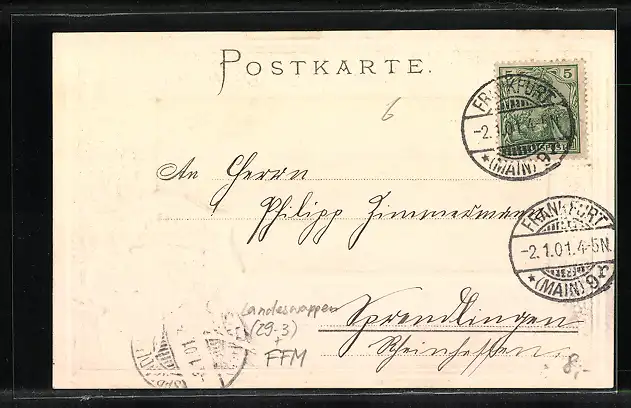 POSTKARTE.
5 5
FRANKFURT
-2.1.01.4-5N.
*(MAIN)9
6
An Herrn
Philipp Zimmermann
FRANKFURT
-2.1.01.4-5N.
*(MAIN)9
Landeswappen
(29-3)
+
FFM
Sprendlingen
Rheinhessen.
8,-